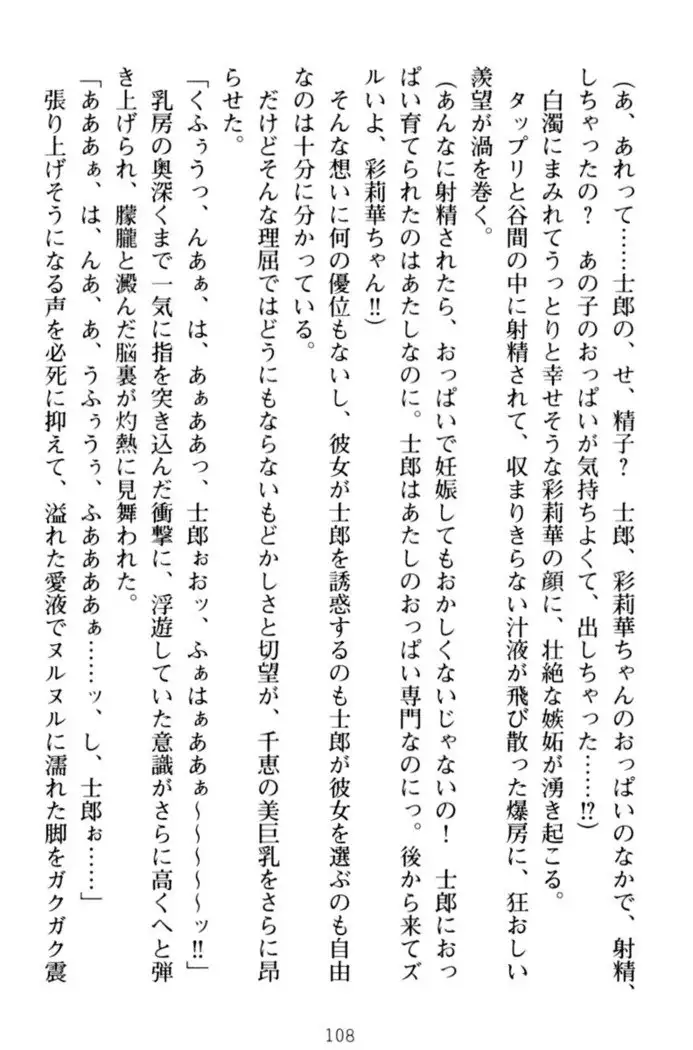 (あ、あれって……士郎の、せ、精子? 士郎、彩莉華ちゃんのおっぱいのなかで、射精、
しちゃったの? あの子のおっぱいが気持ちよくて、出しちゃった……!?)
白濁にまみれてうっとりと幸せそうな彩莉華の顔に、壮絶な嫉妬が湧き起こる。
タップリと谷間の中に射精されて、収まりきらない汁液が飛び散った爆房に、狂おしい
羨望が渦を巻く。
(あんなに射精されたら、おっぱいで妊娠してもおかしくないじゃないの! 士郎におっ
ぱい育てられたのはあたしなのに。士郎はあたしのおっぱい専門なのにっ。後から来てズ
ルいよ、彩莉華ちゃん!!)
そんな想いに何の優位もないし、彼女が士郎を誘惑するのも士郎が彼女を選ぶのも自由
なのは十分に分かっている。
だけどそんな理屈ではどうにもならないもどかしさと切望が、千恵の美巨乳をさらに昂
らせた。
「くふぅうっ、んあぁ、は、あぁああっ、士郎ぉおッ、ふぁはぁああぁ～～～～～ッ!!」
乳房の奥深くまで一気に指を突き込んだ衝撃に、浮遊していた意識がさらに高くへと弾
き上げられ、朦朧と澱んだ脳裏が灼熱に見舞われた。
「あああぁ、は、んあ、あ、うふぅうぅ、ふああああぁ……ッ、し、士郎ぉ……」
張り上げそうになる声を必死に抑えて、溢れた愛液でヌルヌルに濡れた脚をガクガク震
108